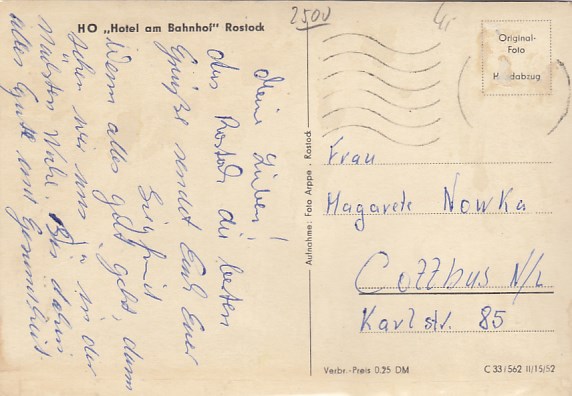 HO „Hotel am Bahnhof" Rostock
2500
Meine Lieben!
Aus Rostock die besten
Grüße sendet Euch Euer
Siegfried
Wenn alles gut geht, dann
sehen wir uns in der
nächsten Woche. Bis dahin
alles Gute und Gesundheit
Aufnahme: Foto Arppe · Rostock
Original-
Foto
Handabzug
Frau
Magarete Nowka
Cottbus N/L
Karlstr. 85
Verbr.-Preis 0.25 DM
C 33/562 II/15/52